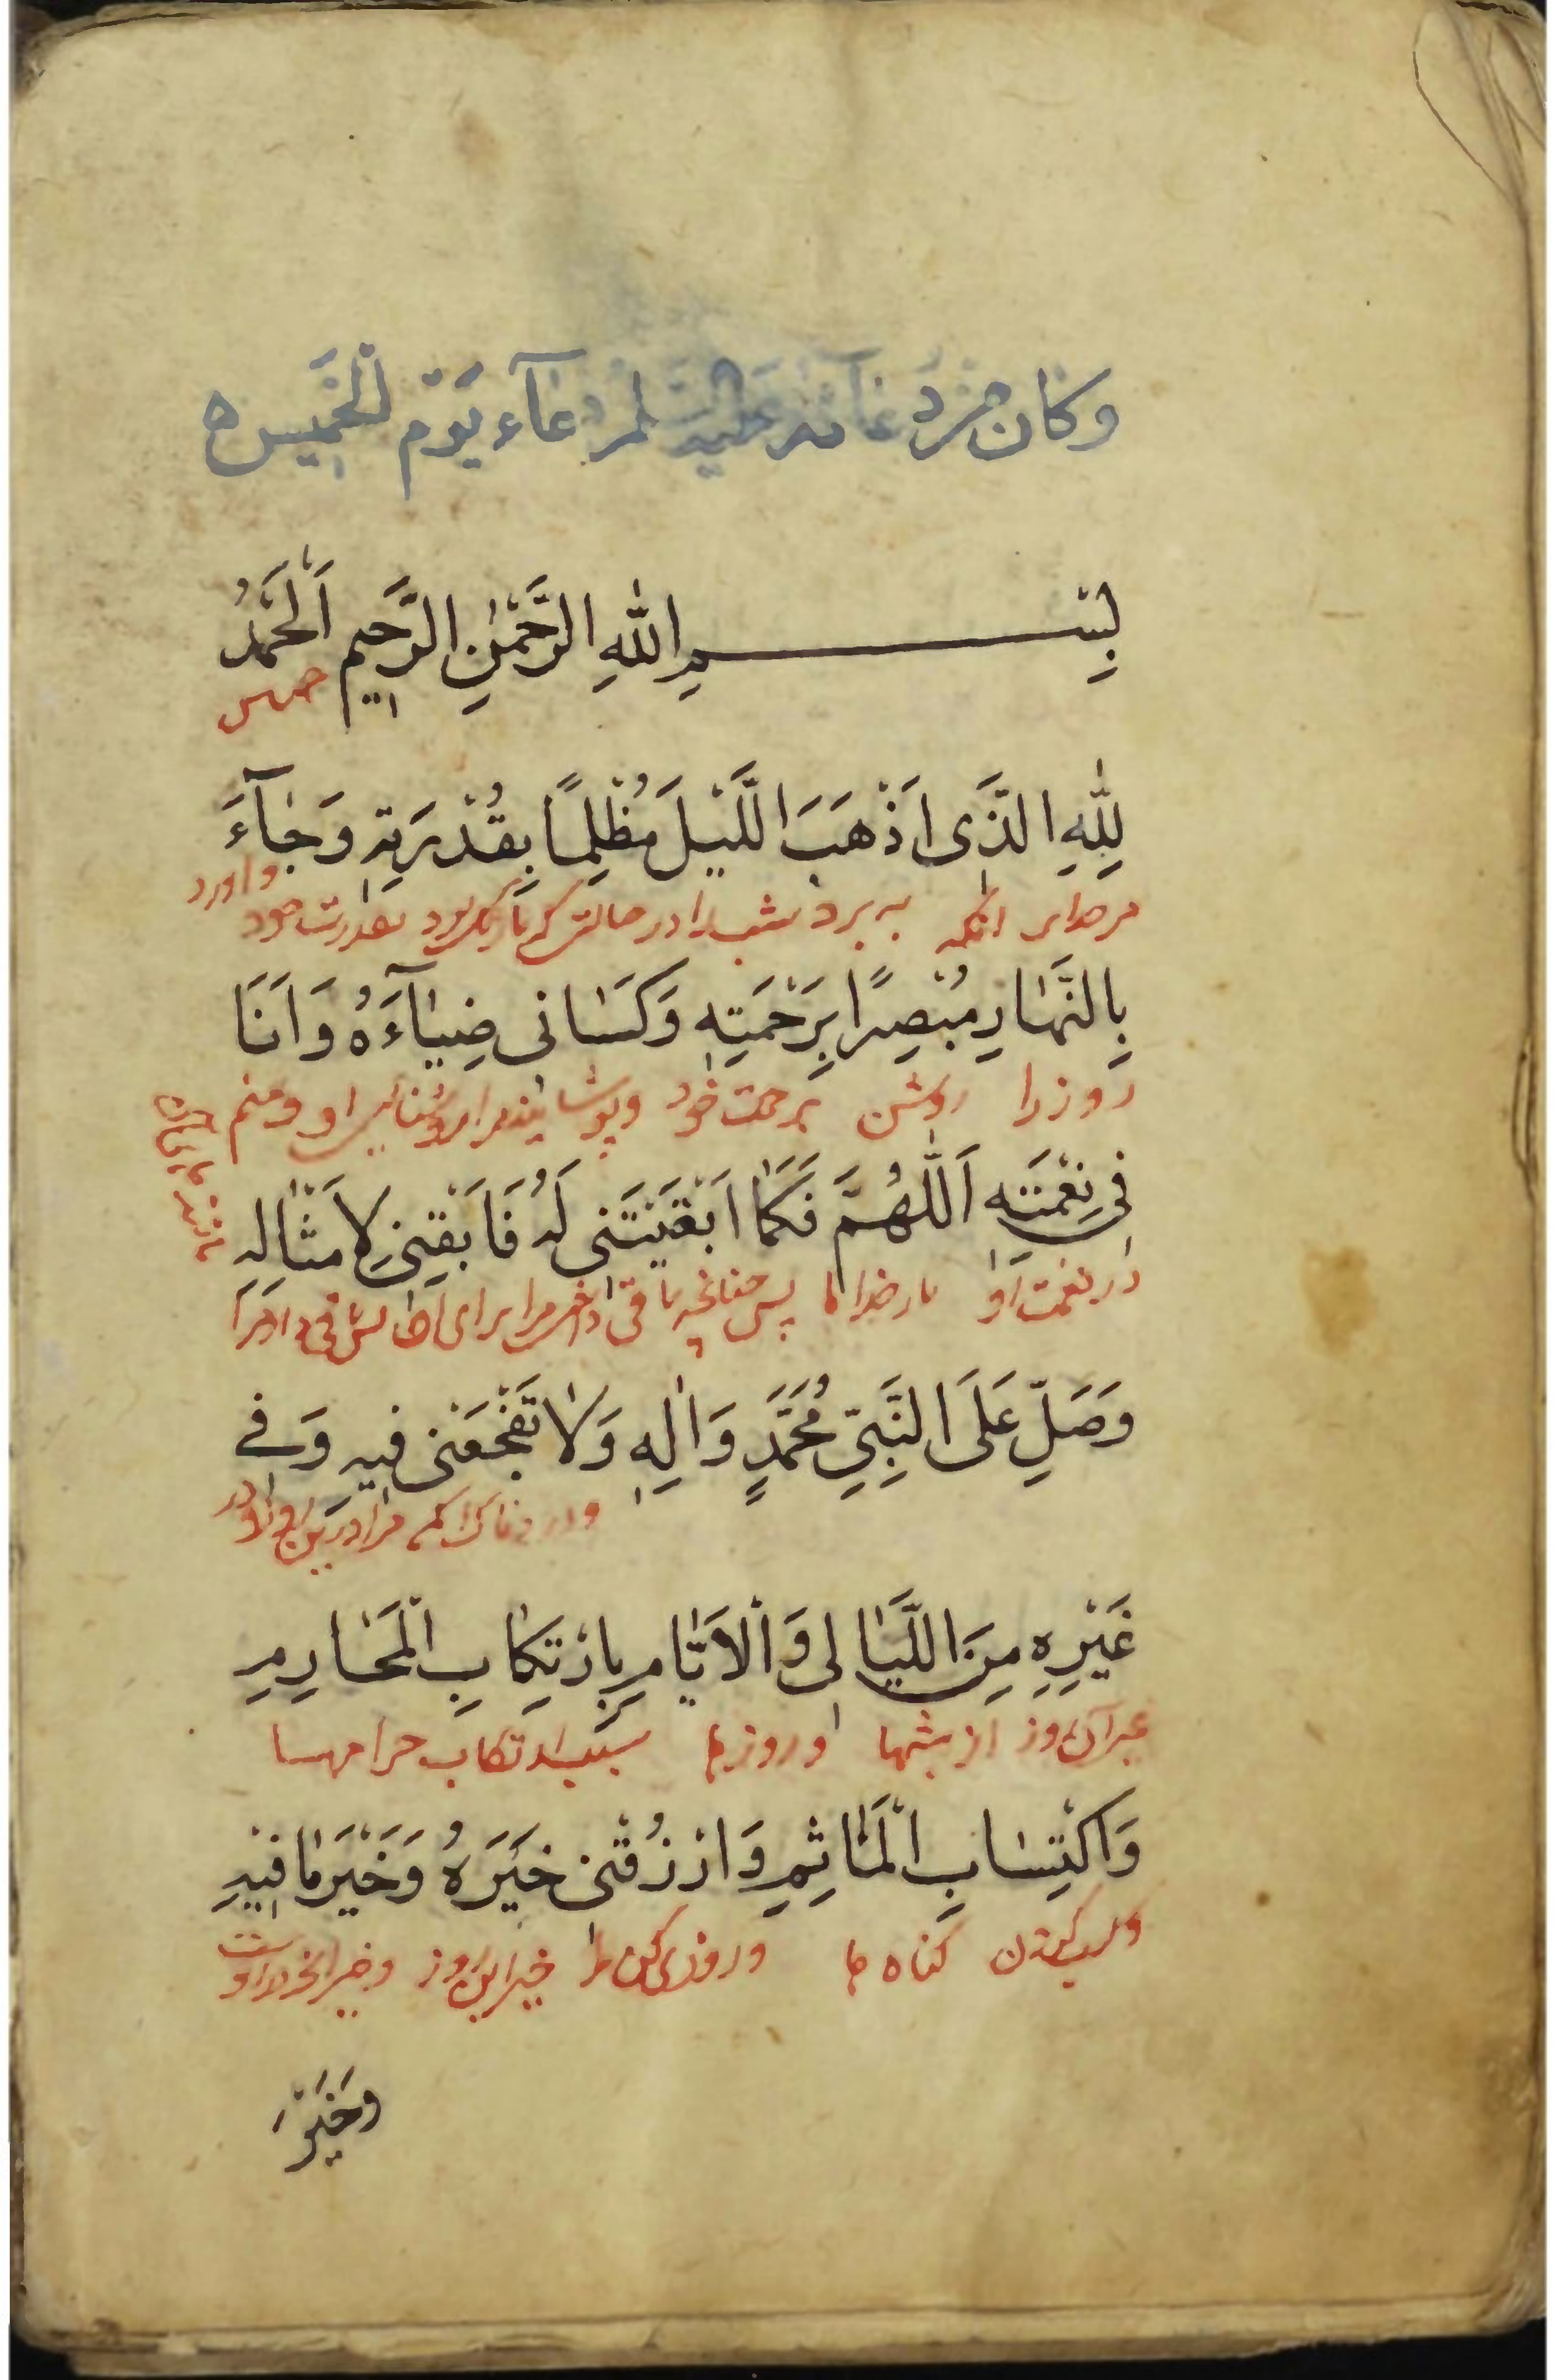 وكان من دعائه عليه السلم دعآء يَوْم الْخَمِيس ه
بِسْمِ اللّٰهِ الرَّحْمٰنِ الرَّحِيمِ اَلْحَمْدُ
لِلّٰهِ الَّذَى اَذْهَبَ اللَّيْلَ مُظْلِمًا بِقُدْرَتِهِ وَجٰآءَ
واورد
مرخدایرا انکه به برد شب را در حالتی که تاریک بود بقدرت خود
بِالنَّهٰارِ مُبْصِرًا بِرَحْمَتِهِ وَكَسٰانى ضِيٰآءَهُ وَاَنَا
روز را روشن برحمت خود وپوشانید مرا روشنایی او ومنم
فى نِعْمَتِهِ اَللّٰهُمَّ فَكَمٰا اَبْقَيْتَنى لَهُ فَاَبْقِنى لِاَمْثٰالِهِ
در نعمت او بار خدایا پس چنانچه باقی داشتی مرا برای باقی دار مرا
وَصَلِّ عَلَى النَّبِيِّ مُحَمَّدٍ وَاٰلِهِ وَلٰا تَفْجَعْنى فيهِ وَفے
ودردناک مکن مرا درین روز ودر
غَيْرِهِ مِنَ اللَّيٰالى وَالْاَيّٰامِ بِارْتِكٰابِ الْمَحٰارِمِ
غیر آن روز از شبها و روزها بسبب ارتکاب حرامها
وَاكْتِسٰابِ الْمَاٰثِمِ وَارْزُقْنى خَيْرَهُ وَخَيْرَ مٰا فيهِ
وکسب کردن کناه ها وروزی کن مرا خیر این روز وخیر انچه در اوست
وخَيْرَ